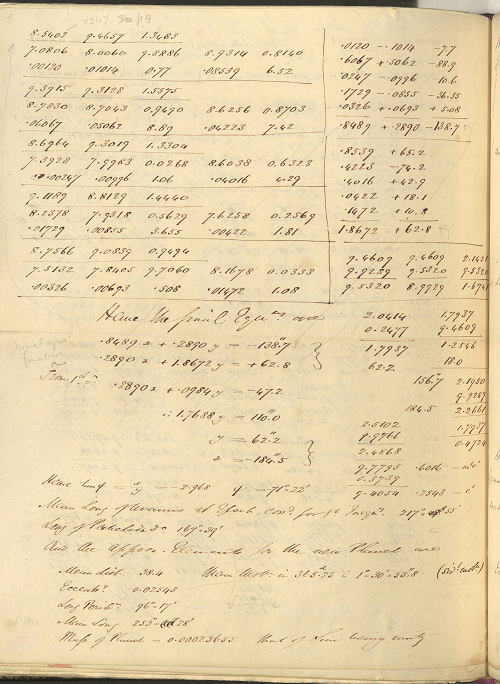 8.5403 9.4657 1.3483
7.0806 8.0060 9.8886 8.9314 0.8140
.00120 .01014 0.77 .08539 6.52
9.3915 9.3128 1.5575
8.7830 8.7043 0.9490 8.6256 0.8703
.06067 .05062 8.89 .04223 7.42
8.6964 9.3019 1.3304
7.3928 7.9983 0.0268 8.6038 0.6323
.00247 .00996 1.06 .04016 4.29
9.1189 8.8129 1.4440
8.2378 7.9318 0.5629 7.6258 0.2569
.01729 .00855 3.655 .00422 1.81
8.7566 9.0839 0.9494
7.5132 7.8405 9.7060 8.1678 0.0333
.00326 .00693 .508 .01472 1.08
.0120 -.1014 -7.7
.6067 +.5062 -88.9
.0247 -.0996 10.6
.1729 -.0855 -36.55
.0326 +.0693 +5.08
.8489 +.2890 -138.7
.8539 +65.2
.4223 -74.2
.4016 +42.9
.0422 +18.1
.1472 +10.8
1.8672 +62.8
9.4609 9.4609 2.1421
9.9289 9.5320 9.5320
9.5320 8.9929 1.6741
Hence the final Equns are
.8489 x + .2890 y = -138".7
.2890 x + 1.8672 y = +62.8
From 1st
.2890 x + .0984 y = -47.2
∴ 1.7688 y = 110".0
y = 62".2
x = -184".5
2.0414 1.7937
0.2477 9.4609
1.7937 1.2546
62.2 18.0
156".7 2.1950
9.9289
184.5 2.2661
2.5102 1.7937
9.9766 0.4724
2.4868
9.7793 .6016
0.3739
9.4054 .2543
Hence = x/y = -2.968 = -71°-22'
Mean Long of Uranus at Epoch, 217°-55'
Long of Perihelion 167°-39'
And the approx. Elements for the new Planet are
Mean dist. 38.4 Mean Mot. in 365.25 is 1°-30'-55".8 (sidl. mot.)
Eccenty. 0.02543
Long Perihn. 96°-17'
Mean Long 253°-28'
Mass of Planet = 0.00023655 that of Sun being unity